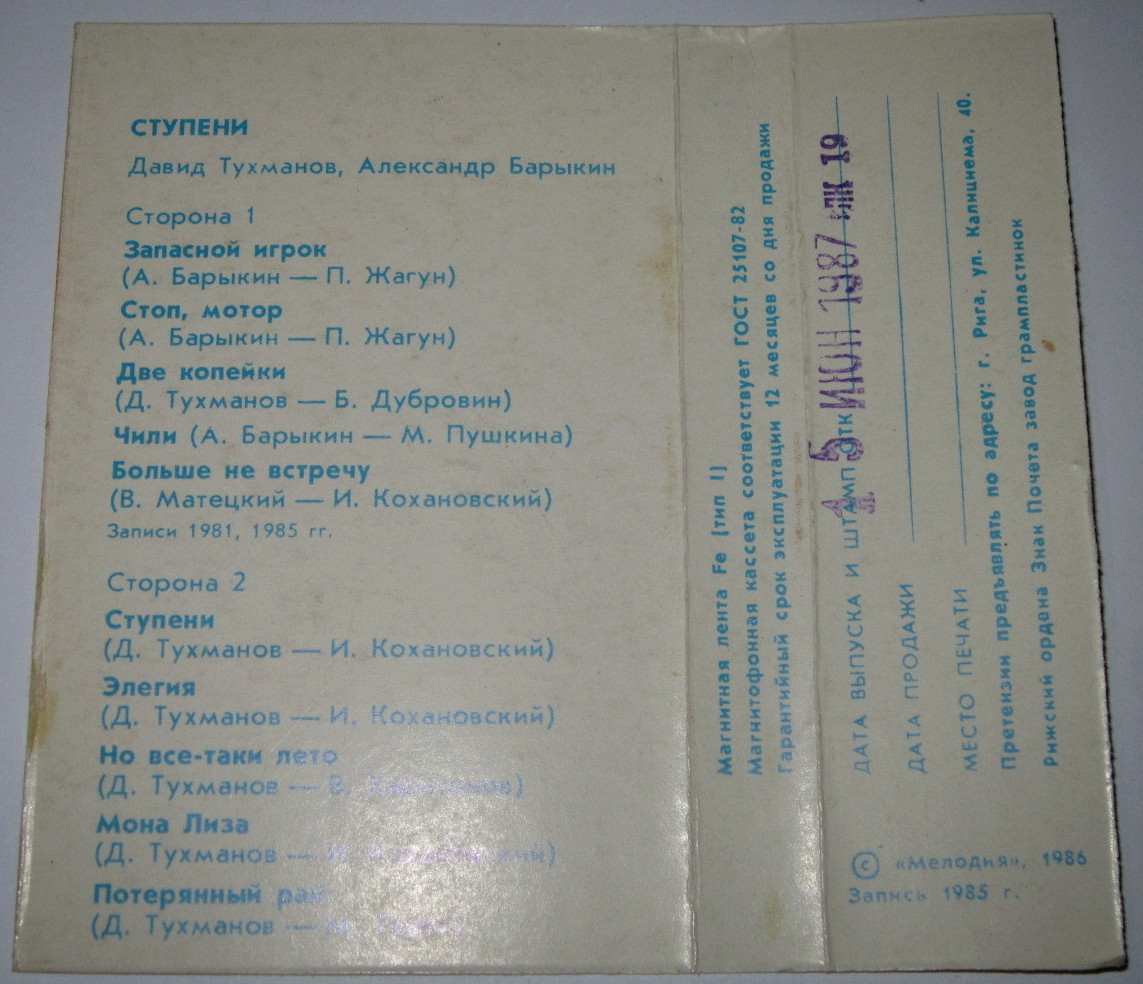 СТУПЕНИ
Давид Тухманов, Александр Барыкин
Сторона 1
Запасной игрок
(А. Барыкин — П. Жагун)
Стоп, мотор
(А. Барыкин — П. Жагун)
Две копейки
(Д. Тухманов — Б. Дубровин)
Чили (А. Барыкин — М. Пушкина)
Больше не встречу
(В. Матецкий — И. Кохановский)
Записи 1981, 1985 гг.
Сторона 2
Ступени
(Д. Тухманов — И. Кохановский)
Элегия
(Д. Тухманов — И. Кохановский)
Но все-таки лето
(Д. Тухманов —
Мона Лиза
(Д. Тухманов —
Потерянный рай
(Д. Тухманов —
Магнитная лента Fe [тип I]
Магнитофонная кассета соответствует ГОСТ 25107-82
Гарантийный срок эксплуатации 12 месяцев со дня продажи
ДАТА ВЫПУСКА И ШТАМП ОТК
5 ИЮН 1987
ДАТА ПРОДАЖИ
МЕСТО ПЕЧАТИ
Претензии предъявлять по адресу: г. Рига, ул. Калнциема, 40.
Рижский ордена Знак Почета завод грампластинок
© «Мелодия», 1986
Запись 1985 г.